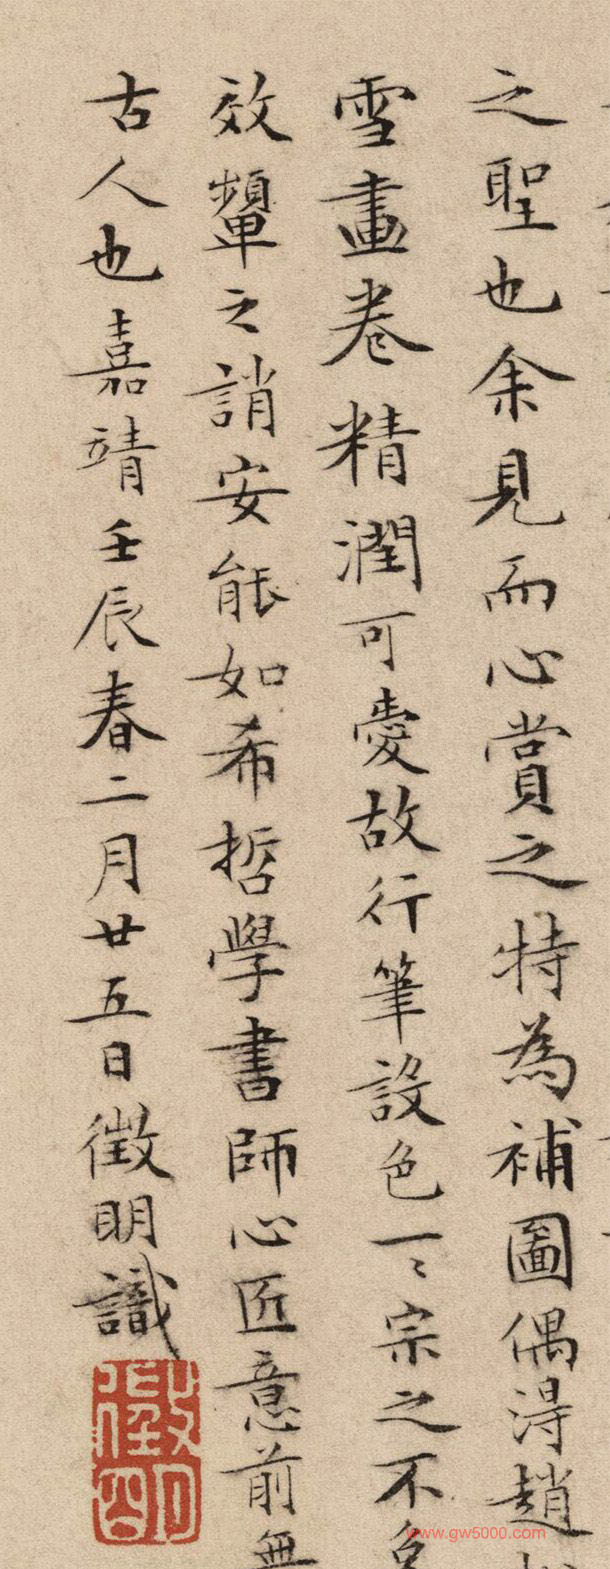 之聖也余見而心賞之特為補圖偶得趙
雪畫卷精潤可愛故行筆設色一〻宗之不免
效顰之誚安能如希哲學書師心匠意前無
古人也嘉靖壬辰春二月廿五日徵明識
徵明
www.gw5000.com